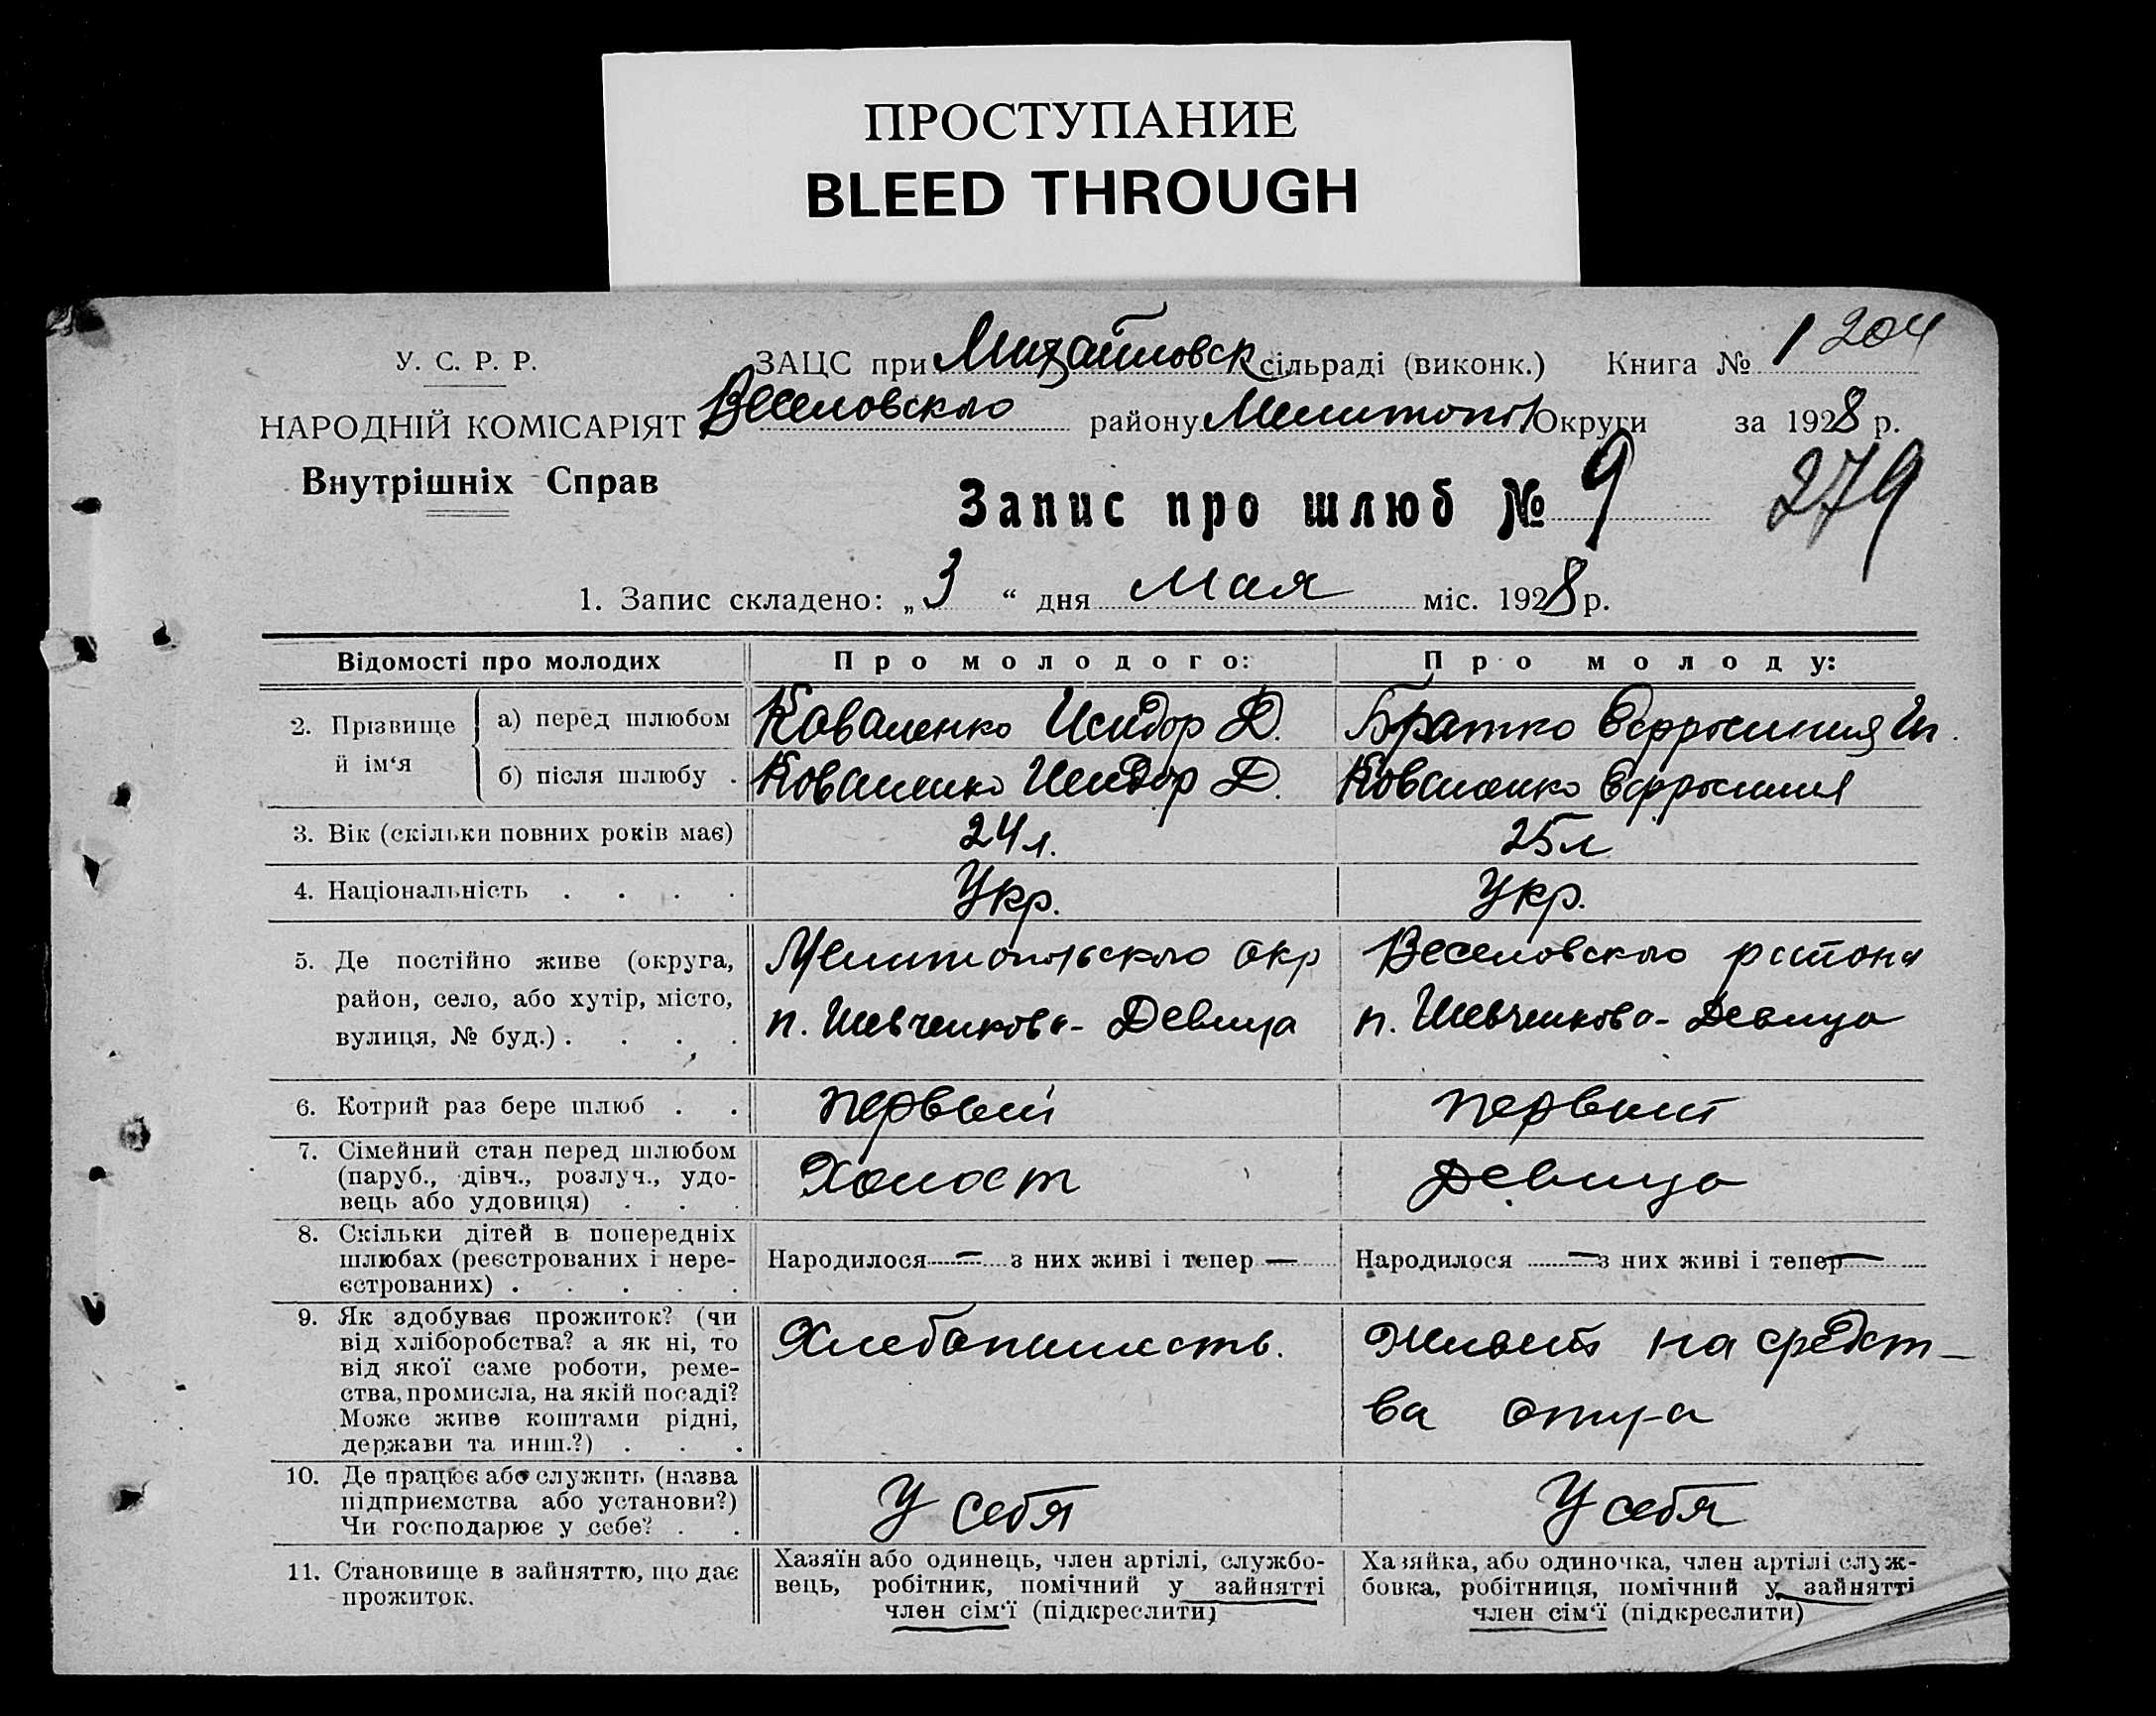 ПРОСТУПАНИЕ
BLEED THROUGH
У. С. Р. Р.
ЗАЦС при Михайловск сільраді (виконк.) Книга № 1 204
НАРОДНІЙ КОМІСАРІЯТ Веселовского району Мелитоп Округи за 1928 р.
Внутрішніх Справ
Запис про шлюб № 9 279
1. Запис складено: „3“ дня Мая міс. 1928 р.
Відомості про молодих Про молодого: Про молоду:
2. Прізвище й ім‘я
а) перед шлюбом Коваленко Исидор Д. Братко Ефросиния И.
б) після шлюбу . Коваленко Исидор Д. Коваленко Ефросиния
3. Вік (скільки повних років має) 24 л. 25 л
4. Національність . . . . Укр. Укр.
5. Де постійно живе (округа, Мелитопольского окр Веселовского района
район, село, або хутір, місто, п. Шевченкова- п. Шевченкова-
вулиця, № буд.) . . . .
6. Котрий раз бере шлюб . . первый первый
7. Сімейний стан перед шлюбом
(паруб., дівч., розлуч., удо- Холост девица
вець або удовиця) . . .
8. Скільки дітей в попередніх
шлюбах (реєстрованих і нере- Народилося — з них живі і тепер — Народилося — з них живі і тепер —
єстрованих) . . . . .
9. Як здобуває прожиток? (чи
від хліборобства? а як ні, то Хлебопашеств. Живет на средст-
від якої саме роботи, реме-
ства, промисла, на якій посаді? ва отца
Може живе коштами рідні,
держави та инш.?) . . .
10. Де працює або служить (назва
підприємства або установи?) У себя У себя
Чи господарює у себе? . .
11. Становище в зайняттю, що дає Хазяїн або одинець, член артілі, службо- Хазяйка, або одиночка, член артілі служ-
прожиток. вець, робітник, помічний у зайнятті бовка, робітниця, помічний у зайнятті
член сім‘ї (підкреслити) член сім‘ї (підкреслити)